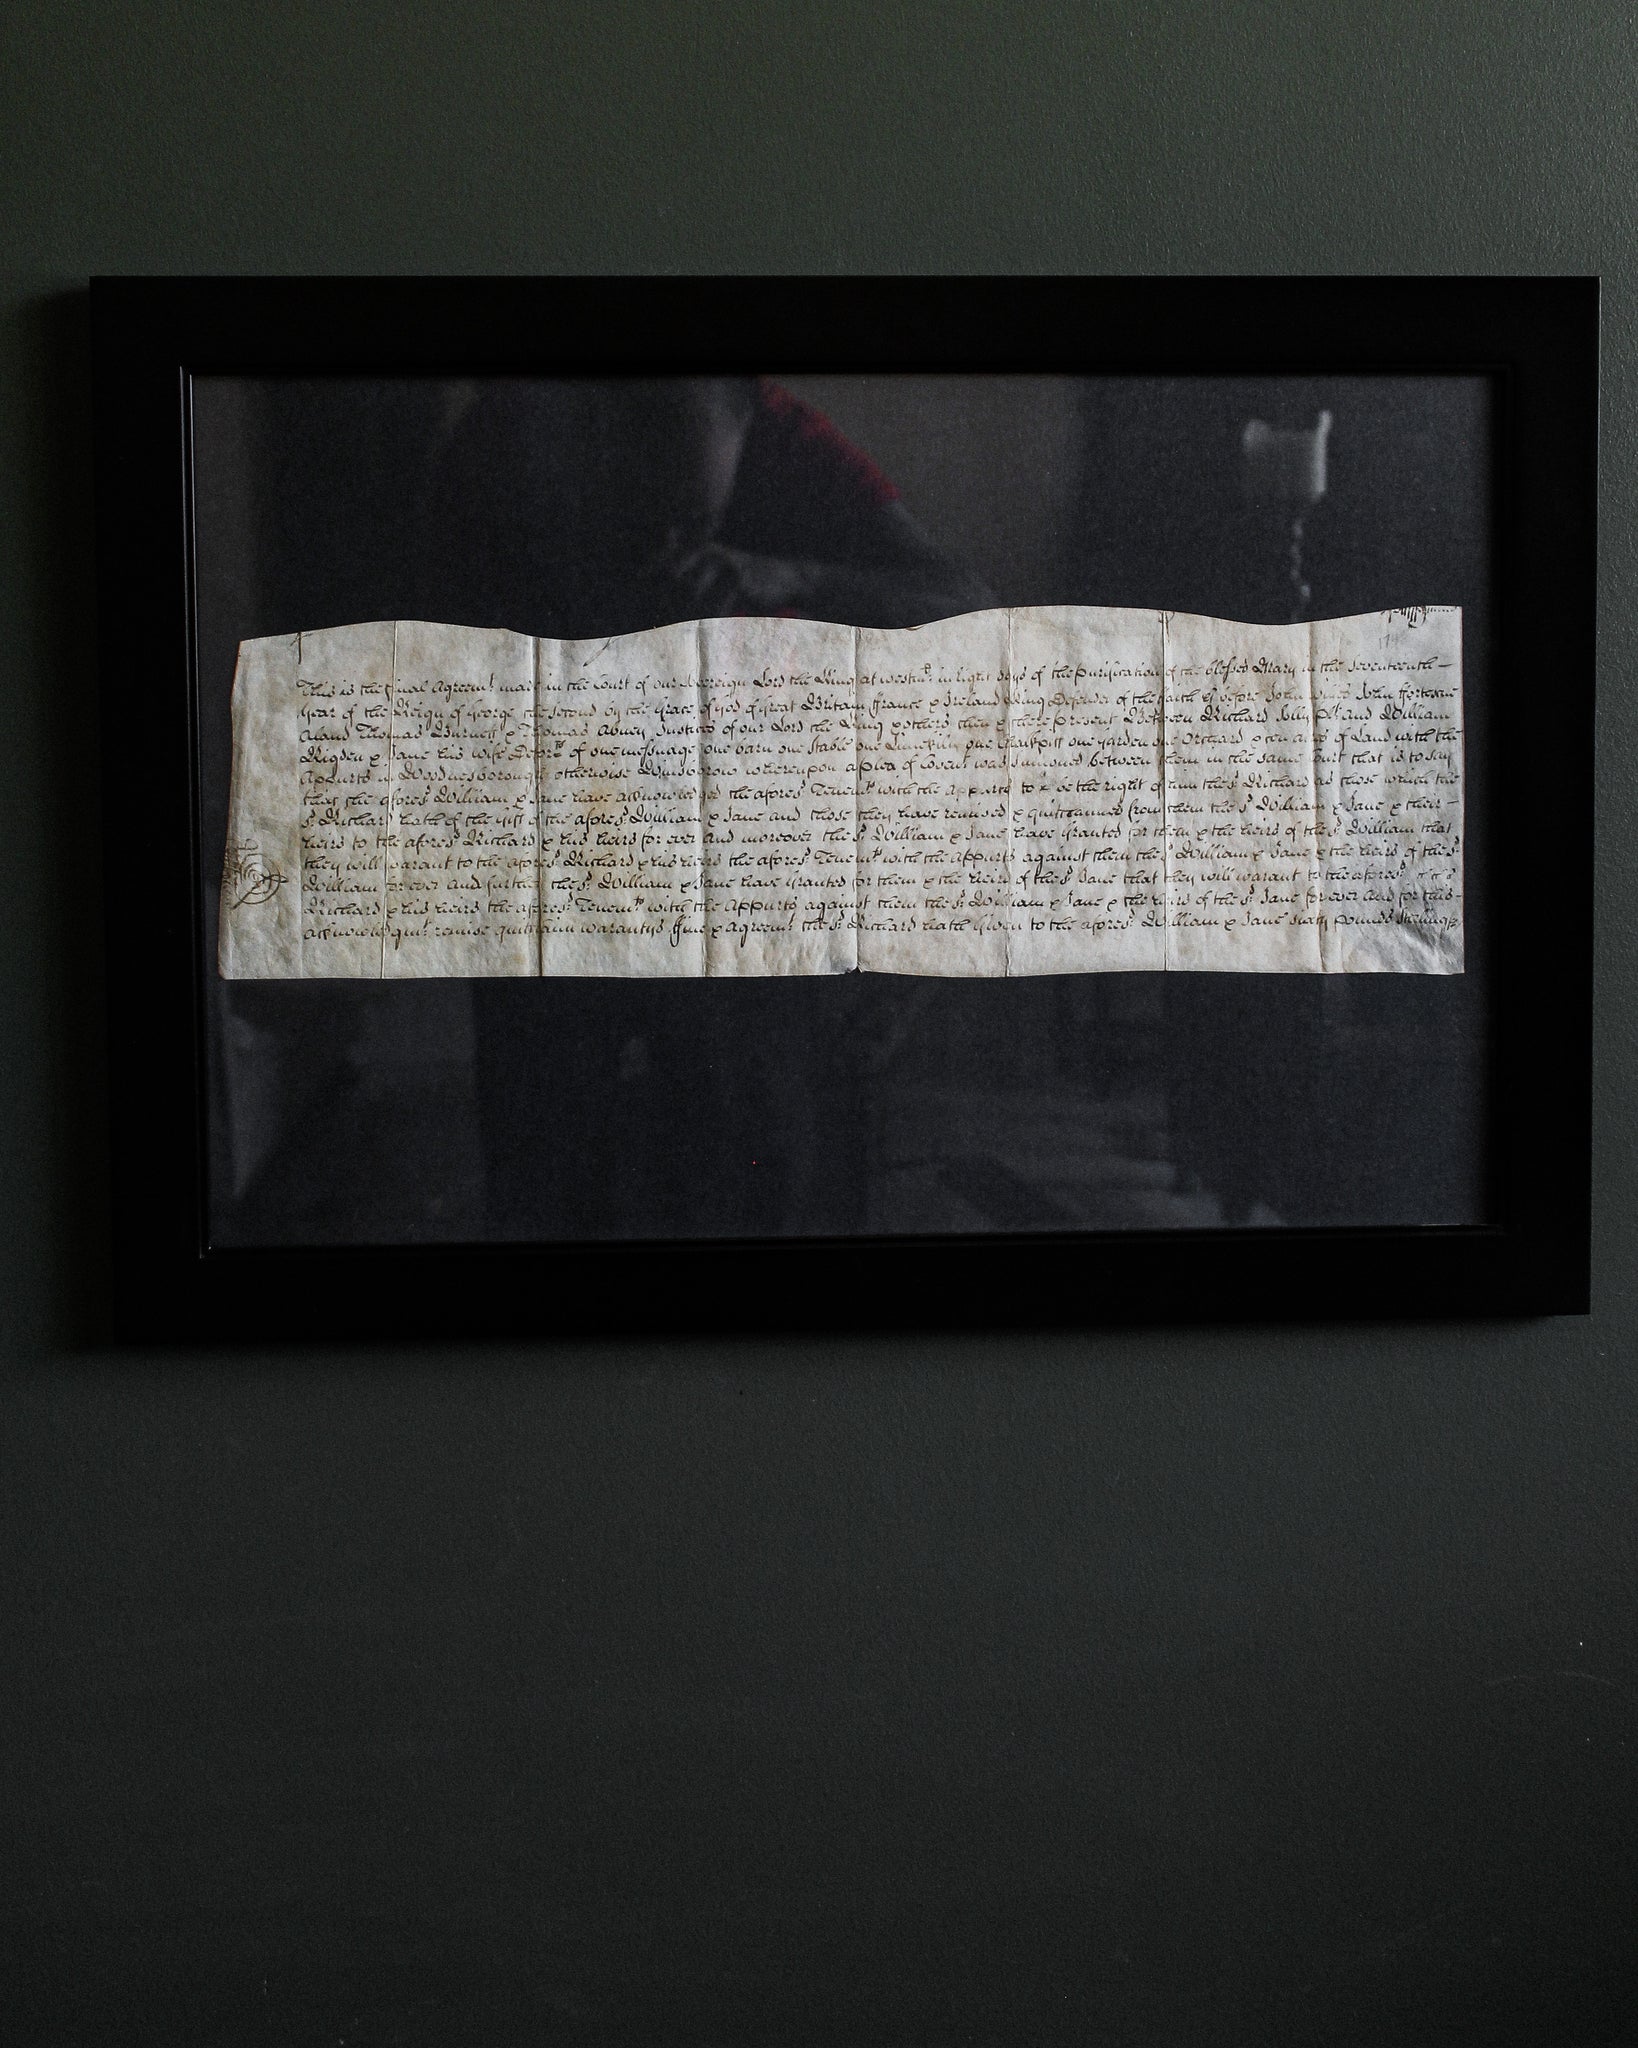 This is the final Agreemt made in the Court of our Sovereign Lord the King at Westmr in Eight days of the Purification of the blessed Mary in the seventeenth
Year of the Reign of George the second by the Grace of God of Great Britain ffrance & Ireland King Defender of the ffaith &c before John Willes John ffortescue
Aland Thomas Burnett & Thomas Abney Justices of our Lord the King & others then & there present Between Richard Jolly Plt and William
Rigden & Jane his Wife Deforts of one messuage one barn one stable one Limekiln one Chalkpitt one Garden one Orchard & ten acres of Land with the
Appurts in Woodnesborough otherwise Winsborow whereupon a plea of Covent was sumoned between them in the same Court that is to say
that the aforesd William & Jane have acknowledged the aforesd Tenemts with the Appurts to be the right of him the sd Richard as those which the
sd Richard hath of the Gift of the aforesd William & Jane and those they have remised & quitclaimed from them the sd William & Jane & their
heirs to the aforesd Richard & his heirs for ever And moreover the sd William & Jane have Granted for them & the heirs of the sd William that
they will warant to the aforesd Richard & his heirs the aforesd Tenemts with the Appurts against them the sd William & Jane & the heirs of the sd
William for ever and further the sd William & Jane have Granted for them & the heirs of the sd Jane that they will warant to the aforesd
Richard & his heirs the aforesd Tenemts with the Appurts against them the sd William & Jane & the heirs of the sd Jane for ever And for this
acknowledgmt remise quitclaim warantys ffine & Agreemt the sd Richard hath Given to the aforesd William & Jane sixty pounds sterling